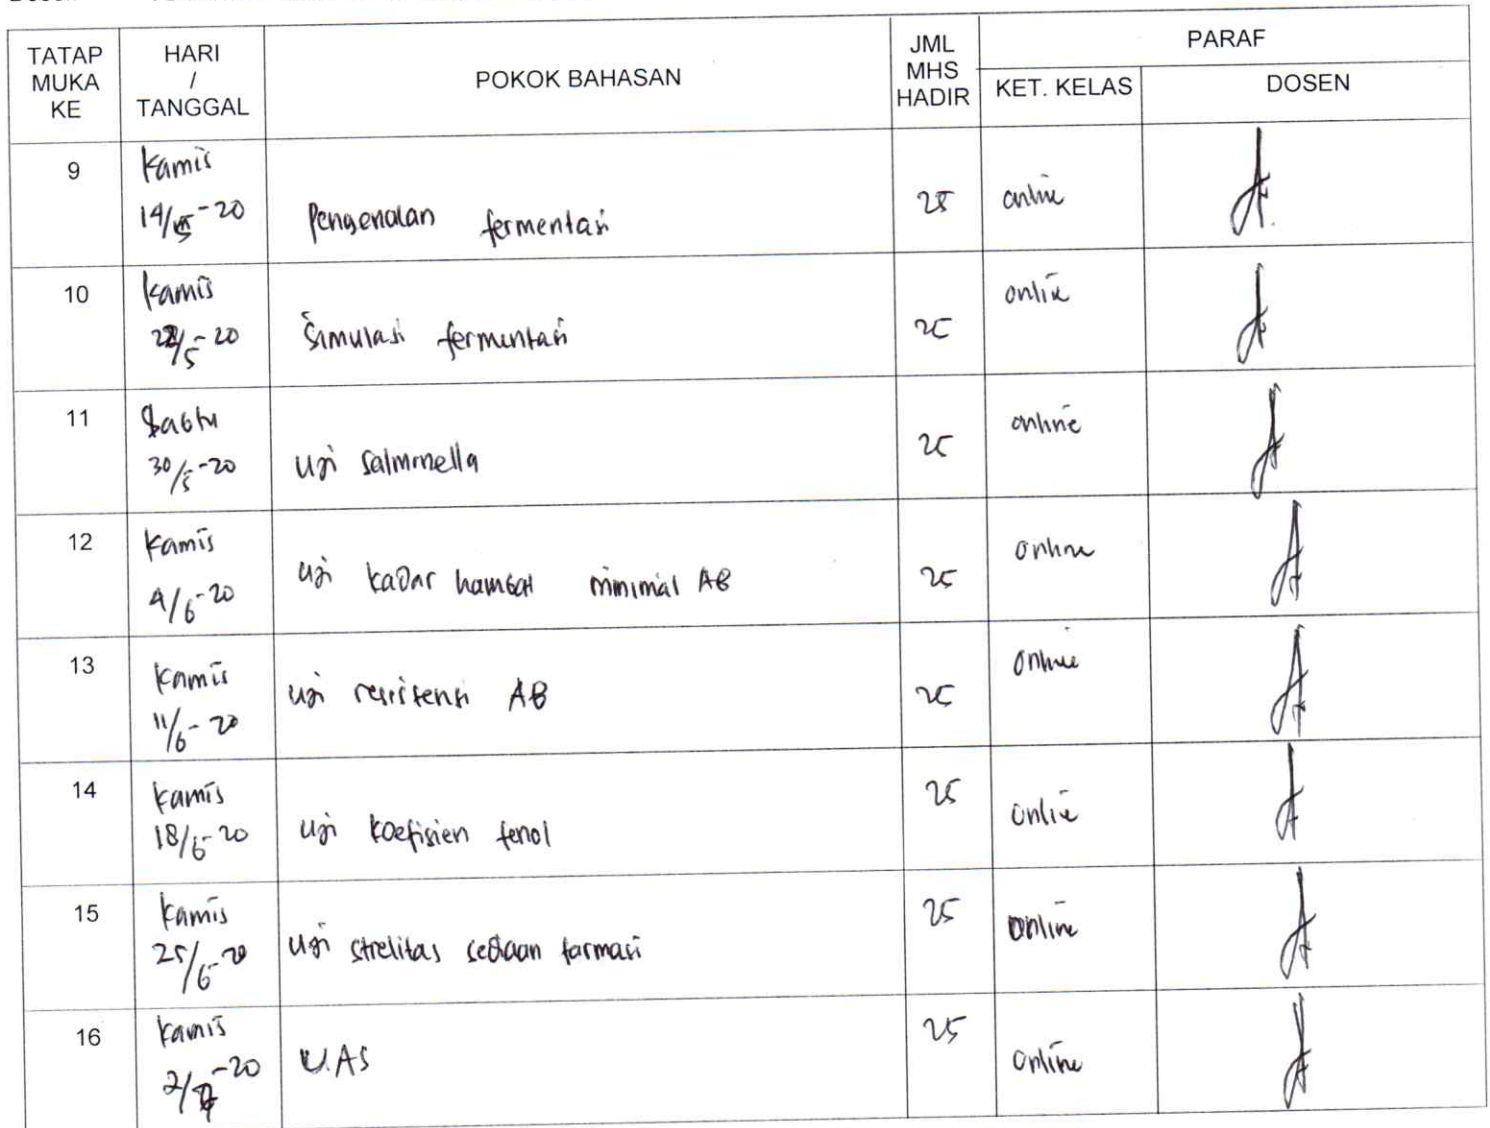 TATAP MUKA KE HARI / TANGGAL POKOK BAHASAN JML MHS HADIR PARAF
KET. KELAS DOSEN
9 Kamis 14/5-20 Pengenalan fermentasi 25 online
10 Kamis 22/5-20 Simulasi fermentasi 25 online
11 Sabtu 30/5-20 Uji Salmonella 25 online
12 Kamis 4/6-20 Uji kadar hambat minimal AB 25 online
13 Kamis 11/6-20 Uji resistensi AB 25 online
14 Kamis 18/6-20 Uji koefisien fenol 25 online
15 Kamis 25/6-20 Uji strelitas sediaan farmasi 25 online
16 Kamis 2/7-20 U.AS 25 online